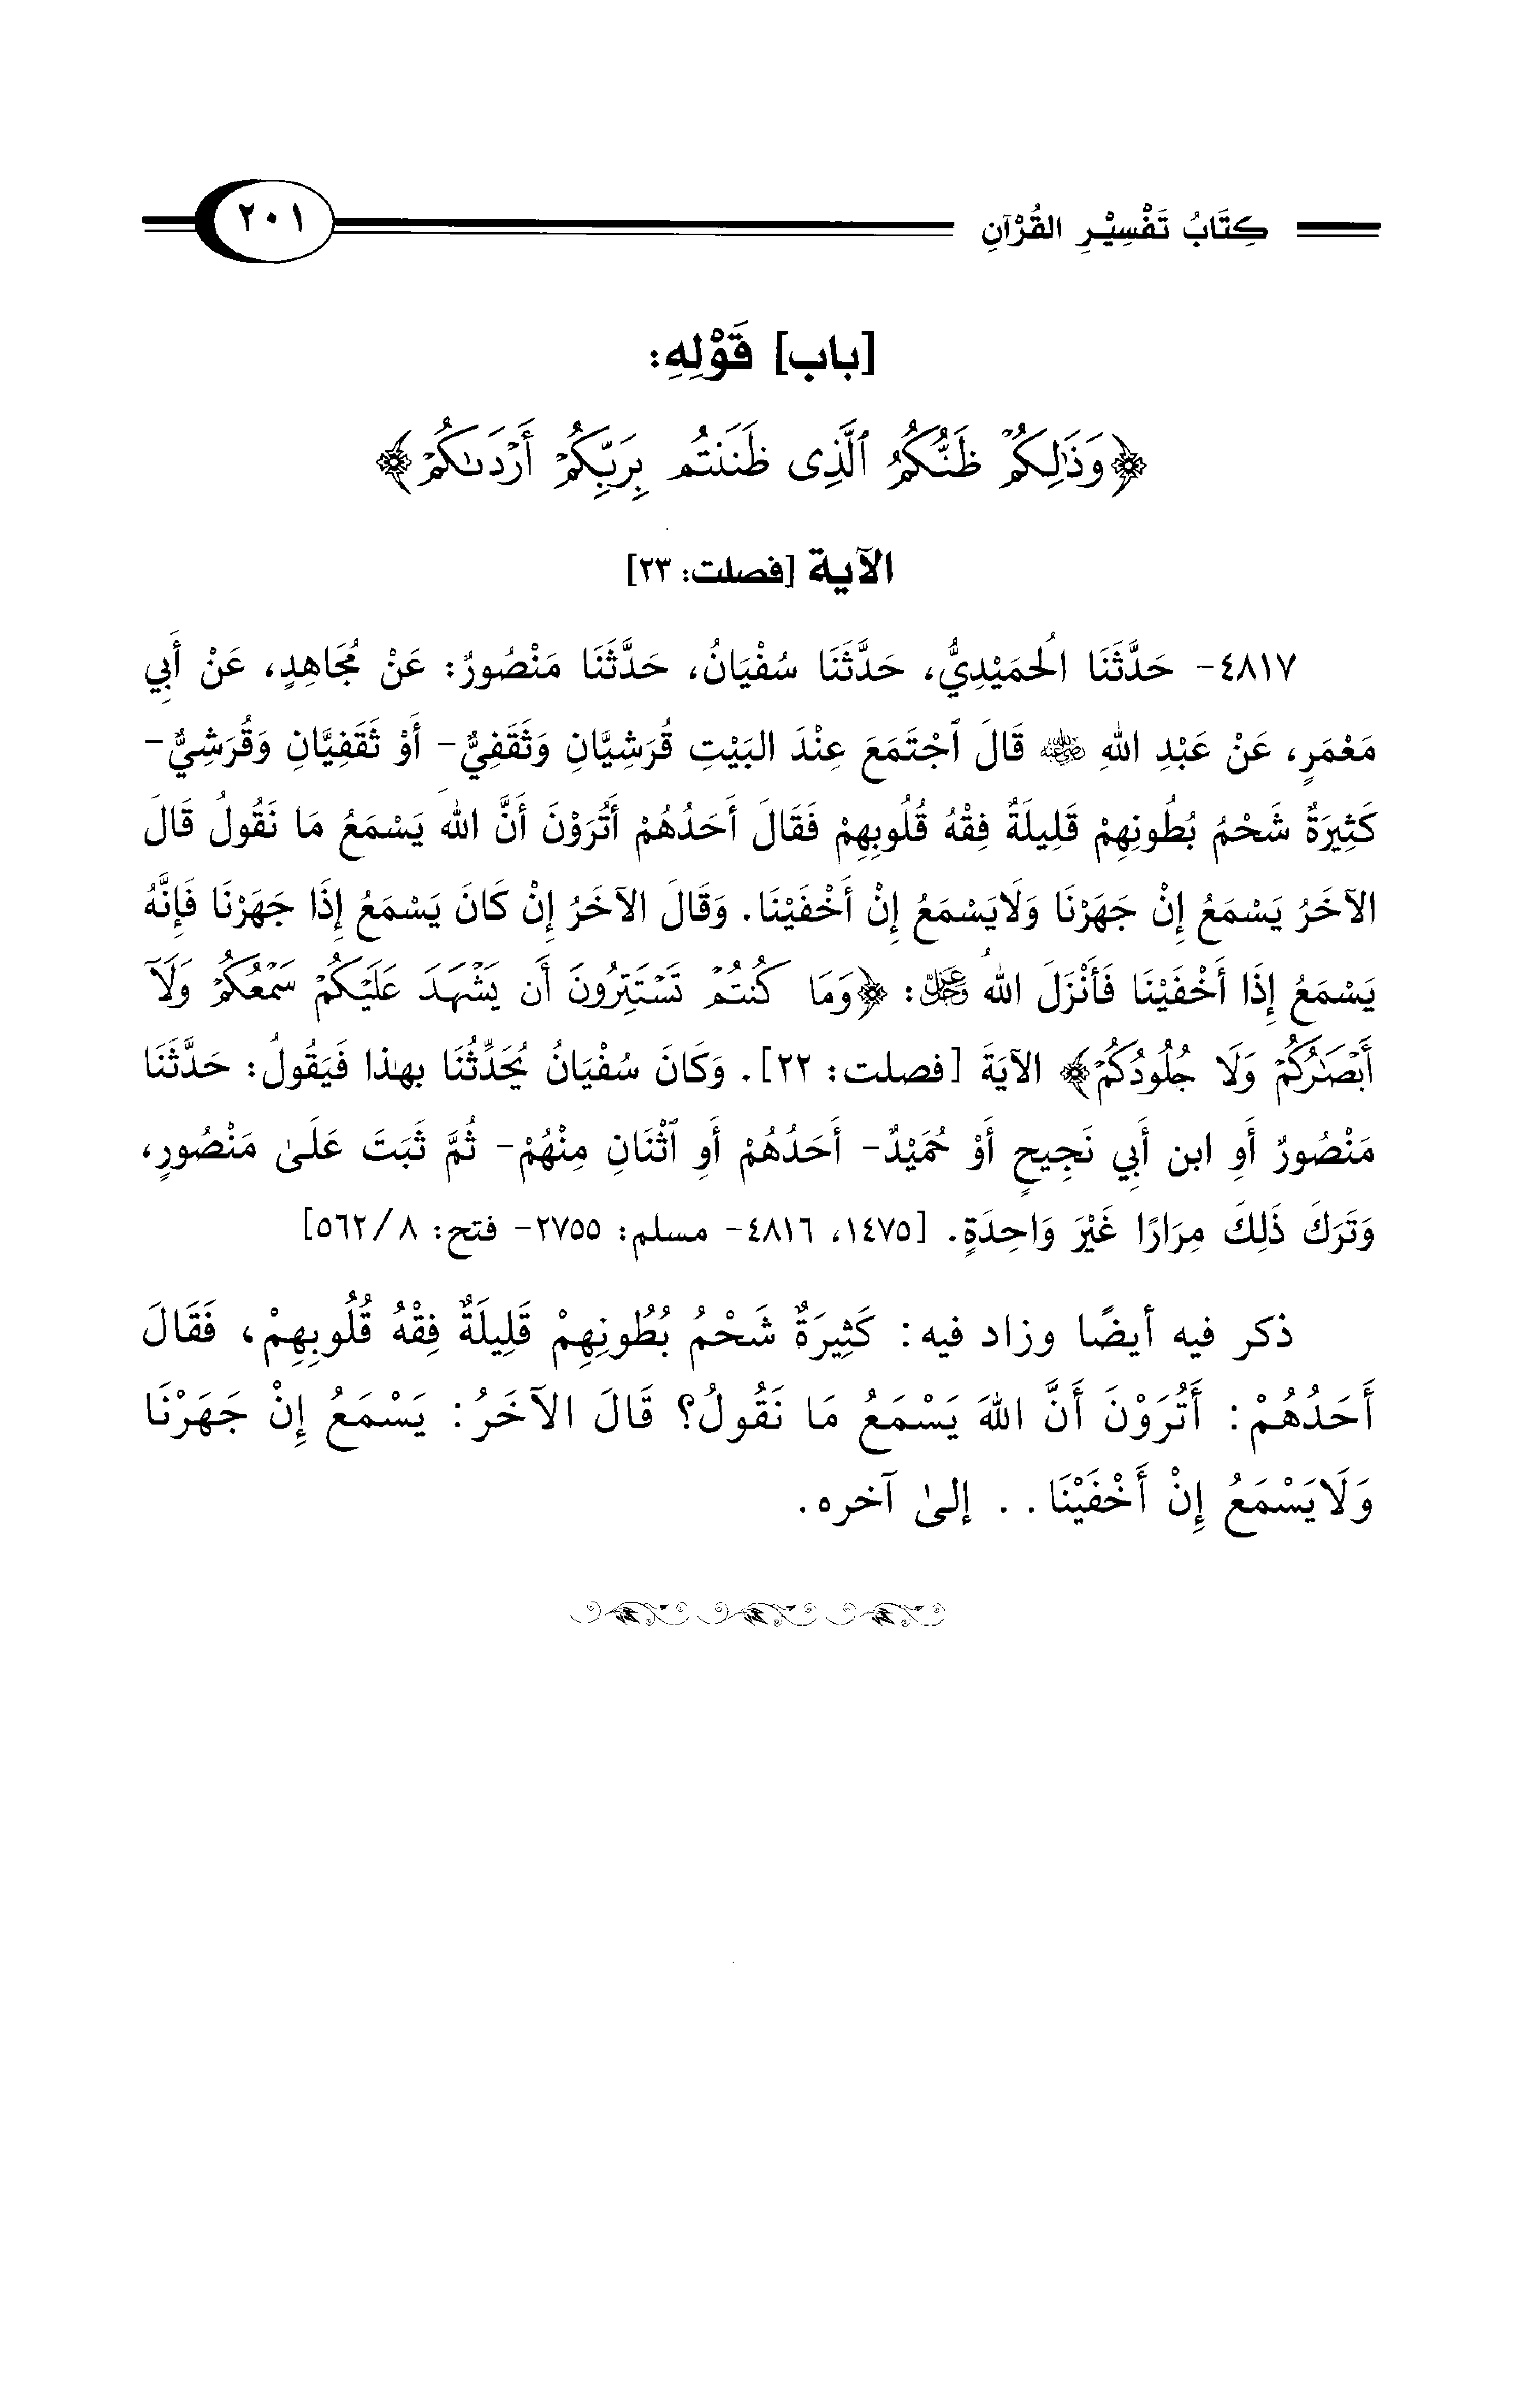 كِتَابُ تَفْسِيْرِ القُرْآنِ ٢٠١
[باب] قَوْلِهِ:
﴿وَذَٰلِكُمْ ظَنُّكُمُ ٱلَّذِى ظَنَنتُم بِرَبِّكُمْ أَرْدَىٰكُمْ﴾
الآية [فصلت: ٢٣]
٤٨١٧- حَدَّثَنَا الُحمَيْدِيُّ، حَدَّثَنَا سُفْيَانُ، حَدَّثَنَا مَنْصُورٌ: عَنْ مُجَاهِدٍ، عَنْ أَبِي
مَعْمَرٍ، عَنْ عَبْدِ اللهِ رضي الله عنه قَالَ ٱجْتَمَعَ عِنْدَ البَيْتِ قُرَشِيَّانِ وَثَقَفِيٌّ- أَوْ ثَقَفِيَّانِ وَقُرَشِيٌّ-
كَثِيرَةٌ شَحْمُ بُطُونِهِمْ قَلِيلَةٌ فِقْهُ قُلُوبِهِمْ فَقَالَ أَحَدُهُمْ أَتُرَوْنَ أَنَّ اللهَ يَسْمَعُ مَا نَقُولُ قَالَ
الآخَرُ يَسْمَعُ إِنْ جَهَرْنَا وَلَايَسْمَعُ إِنْ أَخْفَيْنَا. وَقَالَ الآخَرُ إِنْ كَانَ يَسْمَعُ إِذَا جَهَرْنَا فَإِنَّهُ
يَسْمَعُ إِذَا أَخْفَيْنَا فَأَنْزَلَ اللهُ عز وجل: ﴿وَمَا كُنتُمْ تَسْتَتِرُونَ أَن يَشْهَدَ عَلَيْكُمْ سَمْعُكُمْ وَلَآ
أَبْصَٰرُكُمْ وَلَا جُلُودُكُمْ﴾ الآيَةَ [فصلت: ٢٢]. وَكَانَ سُفْيَانُ يُحَدِّثُنَا بهذا فَيَقُولُ: حَدَّثَنَا
مَنْصُورٌ أَوِ ابن أَبِي نَجِيحٍ أَوْ حُمَيْدٌ- أَحَدُهُمْ أَوِ ٱثْنَانِ مِنْهُمْ- ثُمَّ ثَبَتَ عَلَىٰ مَنْصُورٍ،
وَتَرَكَ ذَلِكَ مِرَارًا غَيْرَ وَاحِدَةٍ. [١٤٧٥، ٤٨١٦- مسلم: ٢٧٥٥- فتح: ٥٦٢/٨]
ذكر فيه أيضًا وزاد فيه: كَثِيرَةٌ شَحْمُ بُطُونِهِمْ قَلِيلَةٌ فِقْهُ قُلُوبِهِمْ، فَقَالَ
أَحَدُهُمْ: أَتُرَوْنَ أَنَّ اللهَ يَسْمَعُ مَا نَقُولُ؟ قَالَ الآخَرُ: يَسْمَعُ إِنْ جَهَرْنَا
وَلَايَسْمَعُ إِنْ أَخْفَيْنَا.. إلىٰ آخره.